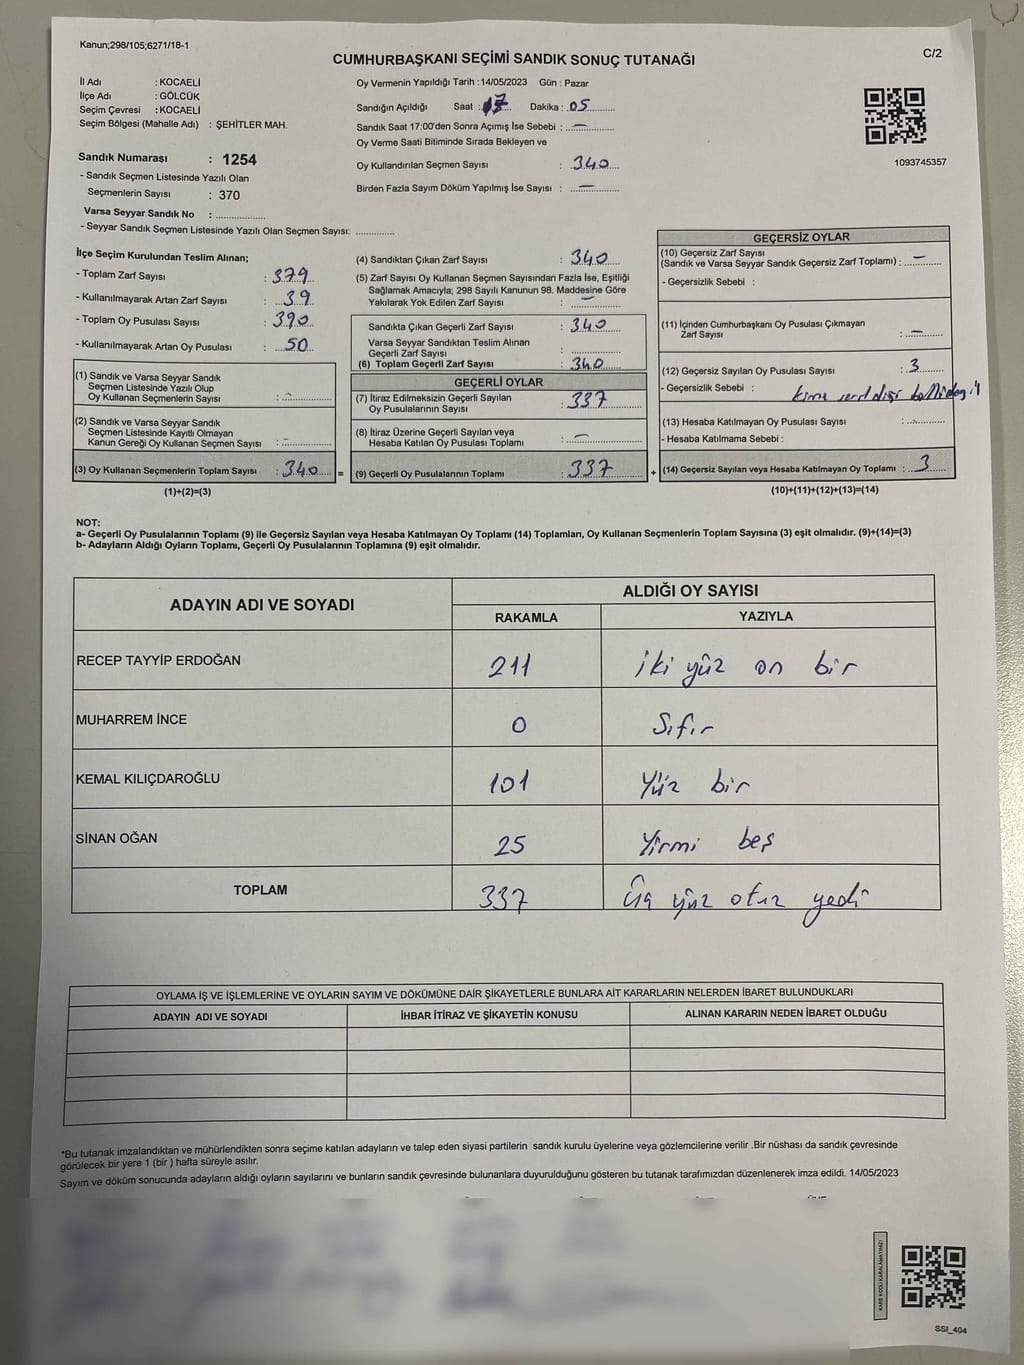 Kanun;298/105;6271/18-1
C/2
CUMHURBAŞKANI SEÇİMİ SANDIK SONUÇ TUTANAĞI
İl Adı : KOCAELİ
İlçe Adı : GÖLCÜK
Seçim Çevresi : KOCAELİ
Seçim Bölgesi (Mahalle Adı) : ŞEHİTLER MAH.
Sandık Numarası : 1254
- Sandık Seçmen Listesinde Yazılı Olan
Seçmenlerin Sayısı : 370
Varsa Seyyar Sandık No : ....................
- Seyyar Sandık Seçmen Listesinde Yazılı Olan Seçmen Sayısı: ...............
Oy Vermenin Yapıldığı Tarih : 14/05/2023 Gün : Pazar
Sandığın Açıldığı Saat : 17 Dakika : 05
Sandık Saat 17:00'den Sonra Açımış İse Sebebi : —
Oy Verme Saati Bitiminde Sırada Bekleyen ve
Oy Kullandırılan Seçmen Sayısı : 340
Birden Fazla Sayım Döküm Yapılmış İse Sayısı : —
1093745357
İlçe Seçim Kurulundan Teslim Alınan;
- Toplam Zarf Sayısı : 379
- Kullanılmayarak Artan Zarf Sayısı : 39
- Toplam Oy Pusulası Sayısı : 390
- Kullanılmayarak Artan Oy Pusulası : 50
(1) Sandık ve Varsa Seyyar Sandık
Seçmen Listesinde Yazılı Olup
Oy Kullanan Seçmenlerin Sayısı : —
(2) Sandık ve Varsa Seyyar Sandık
Seçmen Listesinde Kayıtlı Olmayan
Kanun Gereği Oy Kullanan Seçmen Sayısı : —
(3) Oy Kullanan Seçmenlerin Toplam Sayısı : 340 =
(1)+(2)=(3)
(4) Sandıktan Çıkan Zarf Sayısı : 340
(5) Zarf Sayısı Oy Kullanan Seçmen Sayısından Fazla İse, Eşitliği
Sağlamak Amacıyla; 298 Sayılı Kanunun 98. Maddesine Göre
Yakılarak Yok Edilen Zarf Sayısı : —
Sandıkta Çıkan Geçerli Zarf Sayısı : 340
Varsa Seyyar Sandıktan Teslim Alınan
Geçerli Zarf Sayısı : ...............
(6) Toplam Geçerli Zarf Sayısı : 340
GEÇERLİ OYLAR
(7) İtiraz Edilmeksizin Geçerli Sayılan
Oy Pusulalarının Sayısı : 337
(8) İtiraz Üzerine Geçerli Sayılan veya
Hesaba Katılan Oy Pusulası Toplamı : —
(9) Geçerli Oy Pusulalarının Toplamı : 337 +
GEÇERSİZ OYLAR
(10) Geçersiz Zarf Sayısı
(Sandık ve Varsa Seyyar Sandık Geçersiz Zarf Toplamı) : —
- Geçersizlik Sebebi :
(11) İçinden Cumhurbaşkanı Oy Pusulası Çıkmayan
Zarf Sayısı : —
(12) Geçersiz Sayılan Oy Pusulası Sayısı : 3
- Geçersizlik Sebebi : kime
(13) Hesaba Katılmayan Oy Pusulası Sayısı : —
- Hesaba Katılmama Sebebi :
(14) Geçersiz Sayılan veya Hesaba Katılmayan Oy Toplamı : 3
(10)+(11)+(12)+(13)=(14)
NOT:
a- Geçerli Oy Pusulalarının Toplamı (9) ile Geçersiz Sayılan veya Hesaba Katılmayan Oy Toplamı (14) Toplamları, Oy Kullanan Seçmenlerin Toplam Sayısına (3) eşit olmalıdır. (9)+(14)=(3)
b- Adayların Aldığı Oyların Toplamı, Geçerli Oy Pusulalarının Toplamına (9) eşit olmalıdır.
ADAYIN ADI VE SOYADI ALDIĞI OY SAYISI
RAKAMLA YAZIYLA
RECEP TAYYİP ERDOĞAN 211 iki yüz on bir
MUHARREM İNCE 0 Sıfır
KEMAL KILIÇDAROĞLU 101 Yüz bir
SİNAN OĞAN 25 Yirmi beş
TOPLAM 337 Üç yüz otuz yedi
OYLAMA İŞ VE İŞLEMLERİNE VE OYLARIN SAYIM VE DÖKÜMÜNE DAİR ŞİKAYETLERLE BUNLARA AİT KARARLARIN NELERDEN İBARET BULUNDUKLARI
ADAYIN ADI VE SOYADI İHBAR İTİRAZ VE ŞİKAYETİN KONUSU ALINAN KARARIN NEDEN İBARET OLDUĞU
*Bu tutanak imzalandıktan ve mühürlendikten sonra seçime katılan adayların ve talep eden siyasi partilerin sandık kurulu üyelerine veya gözlemcilerine verilir .Bir nüshası da sandık çevresinde
görülecek bir yere 1 (bir ) hafta süreyle asılır.
Sayım ve döküm sonucunda adayların aldığı oyların sayılarını ve bunların sandık çevresinde bulunanlara duyurulduğunu gösteren bu tutanak tarafımızdan düzenlenerek imza edildi. 14/05/2023
KARE KODU KARALAMAYINIZ!
SSI_404